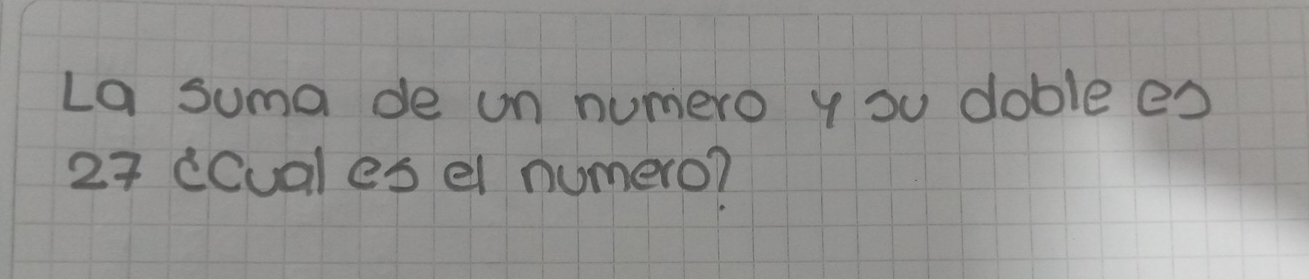 La suma de un numero y su doble es
27 ¿Cual es el numero?